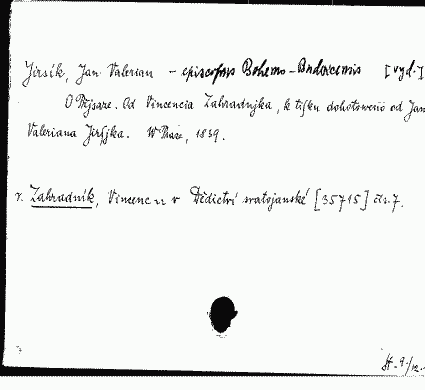 Jirsík, Jan Valerian - episcopus Bohemo-Budvicensis [vyd.]
O Pjsaře. Od Vincencia Zahradnjka, k tisku dohotoweno od Jana
Valeriana Jirsjka. W Praze, 1839.
v. Zahradník, Vincenc v Dědictví svatojanské [35715] čís. 7.